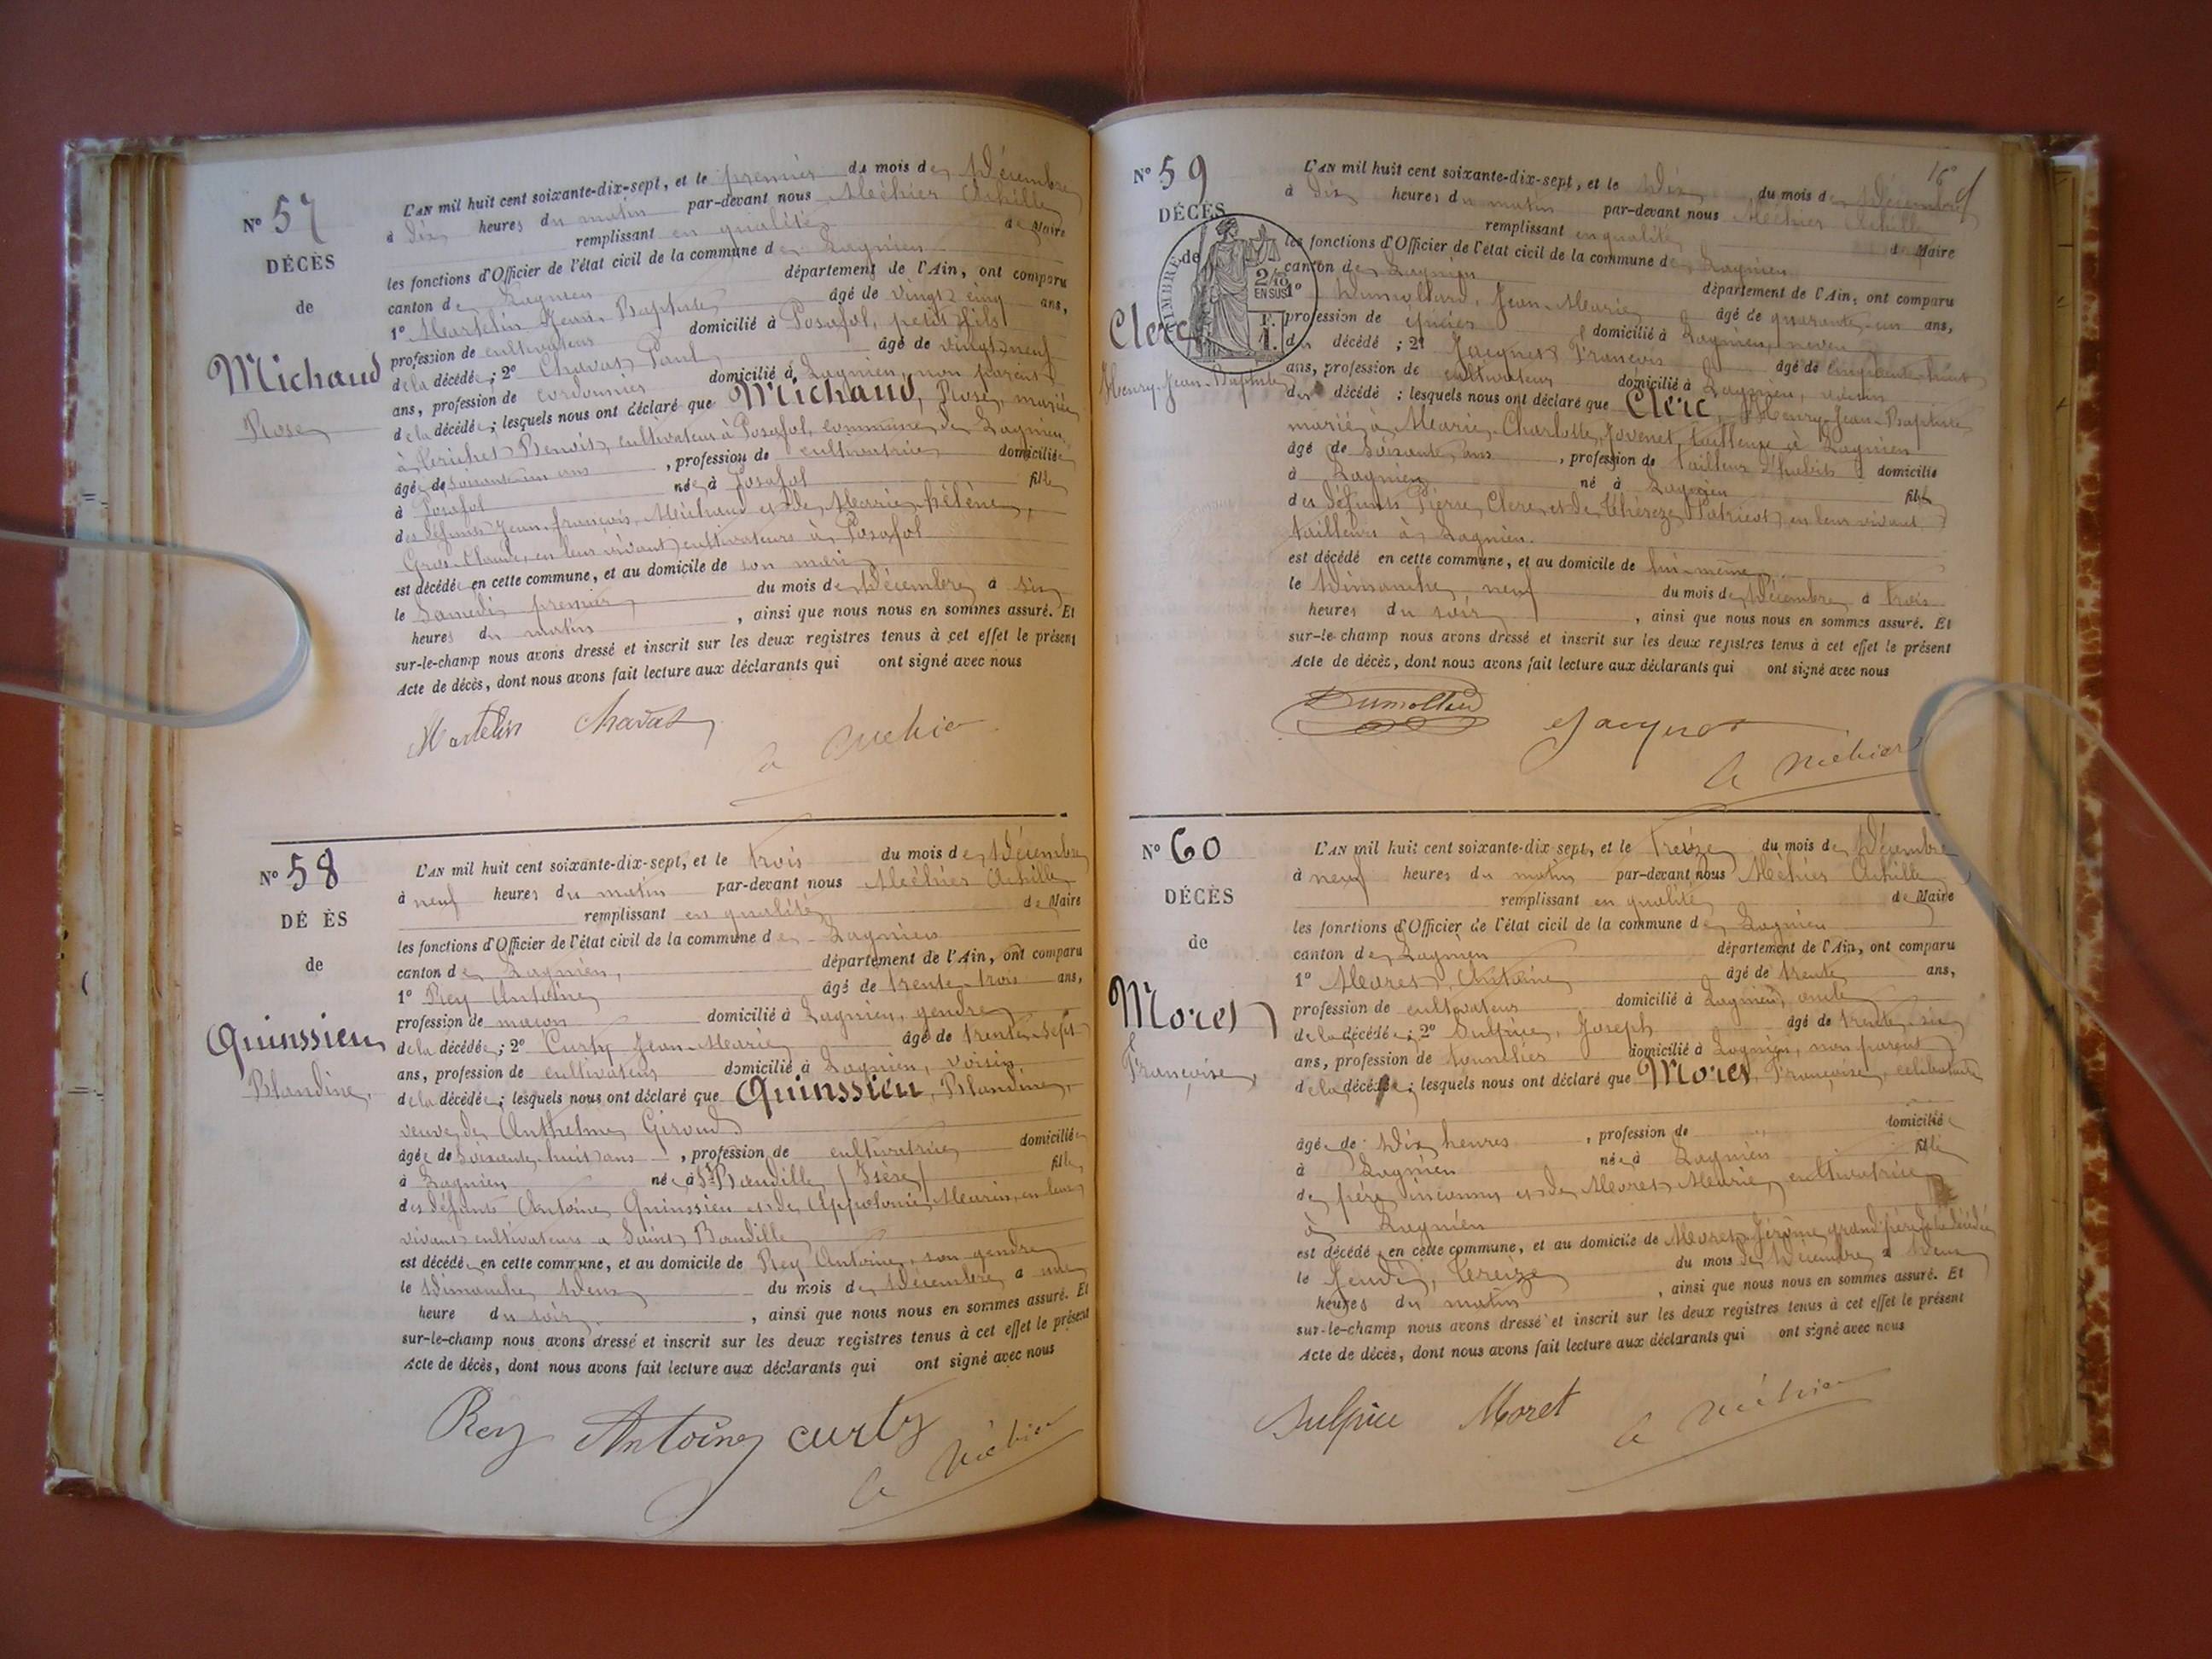 N° 57
DÉCÈS
de
Michaud
Rose
L'AN mil huit cent soixante-dix-sept, et le premier du mois de Décembre
à dix heures du matin par-devant nous Méchier Achille
remplissant en qualité de Maire
les fonctions d'Officier de l'état civil de la commune de Lagnieu
canton de Lagnieu département de l'Ain, ont comparu
1° Martelin Jean-Baptiste âgé de vingt cinq ans,
profession de cultivateur domicilié à Posafol, petit fils
de la décédée; 2° Chavas Paul âgé de vingt neuf
ans, profession de cordonnier domicilié à Lagnieu, non parent
de la décédée; lesquels nous ont déclaré que Michaud, Rose, mariée
à Perichet Benoit, cultivateur à Posafol, commune de Lagnieu,
âgée de soixante un ans, profession de cultivatrice domiciliée
à Posafol née à Posafol fille
des défunts Jean-françois, Michaud et de Marie-hélène,
Gros-Claude, en leur vivant cultivateurs à Posafol
est décédée en cette commune, et au domicile de son mari
le Samedi premier du mois de Décembre à six
heures du matin, ainsi que nous nous en sommes assuré. Et
sur-le-champ nous avons dressé et inscrit sur les deux registres tenus à cet effet le présent
Acte de décès, dont nous avons fait lecture aux déclarants qui ont signé avec nous
Martelin Chavas
A Méchier
N° 58
DÉ ÈS
de
Quinssieu
Blandine,
L'AN mil huit cent soixante-dix-sept, et le trois du mois de Décembre
à neuf heures du matin par-devant nous Méchier Achille
remplissant en qualité de Maire
les fonctions d'Officier de l'état civil de la commune de Lagnieu
canton de Lagnieu, département de l'Ain, ont comparu
1° Rey Antoine âgé de trente trois ans,
profession de maçon domicilié à Lagnieu, gendre
de la décédée; 2° Curty Jean-Marie âgé de trente-sept
ans, profession de cultivateur domicilié à Lagnieu, voisin
de la décédée; lesquels nous ont déclaré que Quinssieu, Blandine,
veuve de Anthelme Giroud
âgée de Soixante-huit ans, profession de cultivatrice domiciliée
à Lagnieu née à St Baudille (Isère) fille
des défunts Antoine Quinssieu et de Appolonie Marin, en leur
vivant cultivateurs a Saint Baudille
est décédée en cette commune, et au domicile de Rey Antoine, son gendre
le Dimanche deux du mois de Décembre à une
heure du soir, ainsi que nous nous en sommes assuré. Et
sur-le-champ nous avons dressé et inscrit sur les deux registres tenus à cet effet le présent
Acte de décès, dont nous avons fait lecture aux déclarants qui ont signé avec nous
Rey Antoine curty
A Méchier
16
N° 59
DÉCÈS
de
TIMBRE
2/10
EN SUS
F.
1.
Clerc
Henry-Jean-Baptiste
L'AN mil huit cent soixante-dix-sept, et le Dix du mois de Décembre
à Dix heures du matin par-devant nous Méchier Achille
remplissant en qualité de Maire
les fonctions d'Officier de l'état civil de la commune de Lagnieu
canton de Lagnieu département de l'Ain, ont comparu
1° Dumollard, Jean-Marie âgé de quarante-un ans,
profession de épicier domicilié à Lagnieu, neveu
du décédé; 2° Jacquet François âgé de Cinquante-huit
ans, profession de cultivateur domicilié à Lagnieu, voisin
du décédé; lesquels nous ont déclaré que Clerc, Henry-Jean-Baptiste
marié à Marie-Charlotte Jovenet, tailleuse à Lagnieu
âgé de soixante ans, profession de tailleur d'habits domicilié
à Lagnieu né à Lagnieu fils
des défunts Pierre Clerc et de Thérèze Patricot, en leur vivant
tailleurs à Lagnieu.
est décédé en cette commune, et au domicile de lui-même
le Dimanche neuf du mois de Décembre à trois
heures du soir, ainsi que nous nous en sommes assuré. Et
sur-le-champ nous avons dressé et inscrit sur les deux registres tenus à cet effet le présent
Acte de décès, dont nous avons fait lecture aux déclarants qui ont signé avec nous
Dumollard Jacquet
A Méchier
N° 60
DÉCÈS
de
Moret
Françoise,
L'AN mil huit cent soixante-dix sept, et le Treize du mois de Décembre
à neuf heures du matin par-devant nous Méchier Achille
remplissant en qualité de Maire
les fonctions d'Officier de l'état civil de la commune de Lagnieu
canton de Lagnieu département de l'Ain, ont comparu
1° Moret, Antoine âgé de trente ans,
profession de cultivateur domicilié à Lagnieu, oncle
de la décédée; 2° Sulpice, Joseph âgé de trente-six
ans, profession de tonnelier domicilié à Lagnieu, non parent
de la décédée; lesquels nous ont déclaré que Moret, Françoise, célibataire
âgée de Dix heures, profession de domiciliée
à Lagnieu née à Lagnieu fille
de père inconnu et de Moret Marie, cultivatrice
à Lagnieu
est décédée en cette commune, et au domicile de Moret Jérôme grand père de la décédée
le Jeudi, Treize du mois de Décembre à Deux
heures du matin, ainsi que nous nous en sommes assuré. Et
sur-le-champ nous avons dressé et inscrit sur les deux registres tenus à cet effet le présent
Acte de décès, dont nous avons fait lecture aux déclarants qui ont signé avec nous
Sulpice Moret
A Méchier